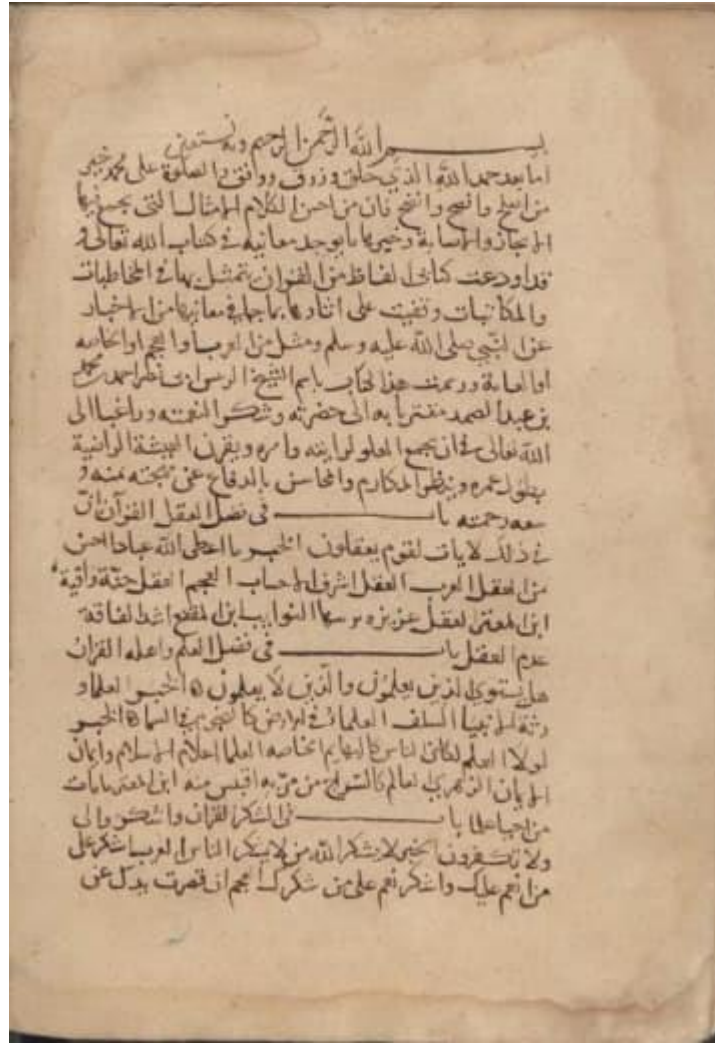 بسم الله الرحمن الرحيم وبه نستعين
اما بعد حمد الله الذي خلق ورزق ووافق والصلوة على محمد خير
من افلح وانجح وافصح فان من احسن الكلام الامثال التي يجمع فيها
الايجاز والاصابة وخيرها ما يوجد معانيه في كتاب الله تعالى و
قد اودعت كتابي الفاظ من القرآن يتمثل بها في المخاطبات
والمكاتبات وقفيت على اثارها بما جاء في معانيها من الاخبار
عن النبي صلى الله عليه وسلم ومثل من العرب او العجم او الخاصه
او العامة ورسمت هذا الكتاب باسم الشيخ الرئيس ابي نصر احمد بن محمد
بن عبد الصمد متقربا به الى حضرته وشكرا لنعمته وراغبا الى
الله تعالى في ان يجمع العلو لرايته وامره ويقرن
بطول عمره وينظم المكارم والمحاسن بالدفاع عن مهجته بمنه و
سعه رحمته باب في فضل العقل القرآن ان
في ذلك لايات لقوم يعقلون الخبر ما اعطى الله عبادا احسن
من العقل العرب العقل اشرف الاحساب العجم العقل جنة واقية
ابن المعتز العقل غريزه تربيها النوايب ابن المقفع اشد الفاقة
عدم العقل باب في فضل العلم واهله القرآن
هل يستوي الذين يعلمون والذين لا يعلمون الخبر العلما و
رثة الانبيا السلف العلما في الارض كالنجوم في السما الخبر
لولا العلم لكان الناس كالبهايم الخاصه العلما اعلام الاسلام وايمان
الايمان الزهري العالم كالسراج من مر به اقتبس منه ابن المعتز ما مات
من احيا علما باب في الشكر القرآن واشكروا لي
ولا تكفرون الخبر لا يشكر الله من لا يشكر الناس العرب اشكر على
من انعم عليك وانعم على من شكرك العجم ان قصرت يدك عن